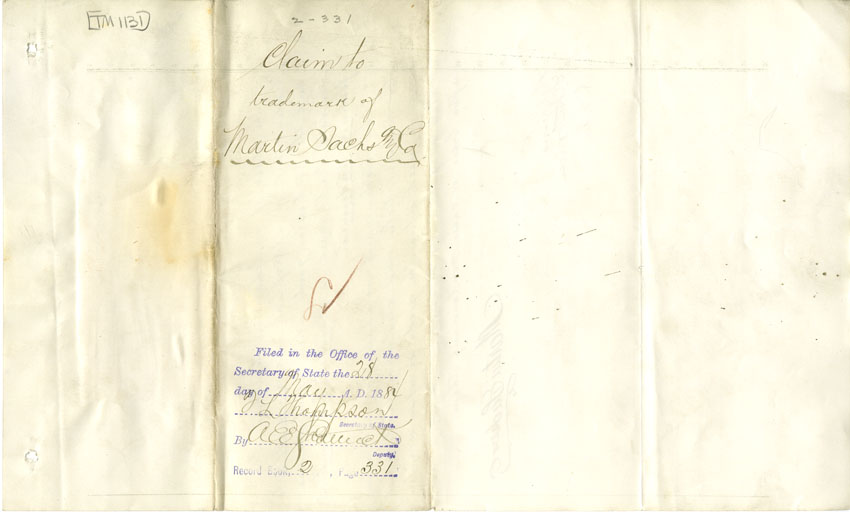 TM 1131
2-331
Claim to
trademark of
Martin Sachs & Co
Filed in the Office of the
Secretary of State the 28
day of May A. D. 1884
T L Thompson
Secretary of State.
By A. E.
Deputy
Record Book 2, Page 331